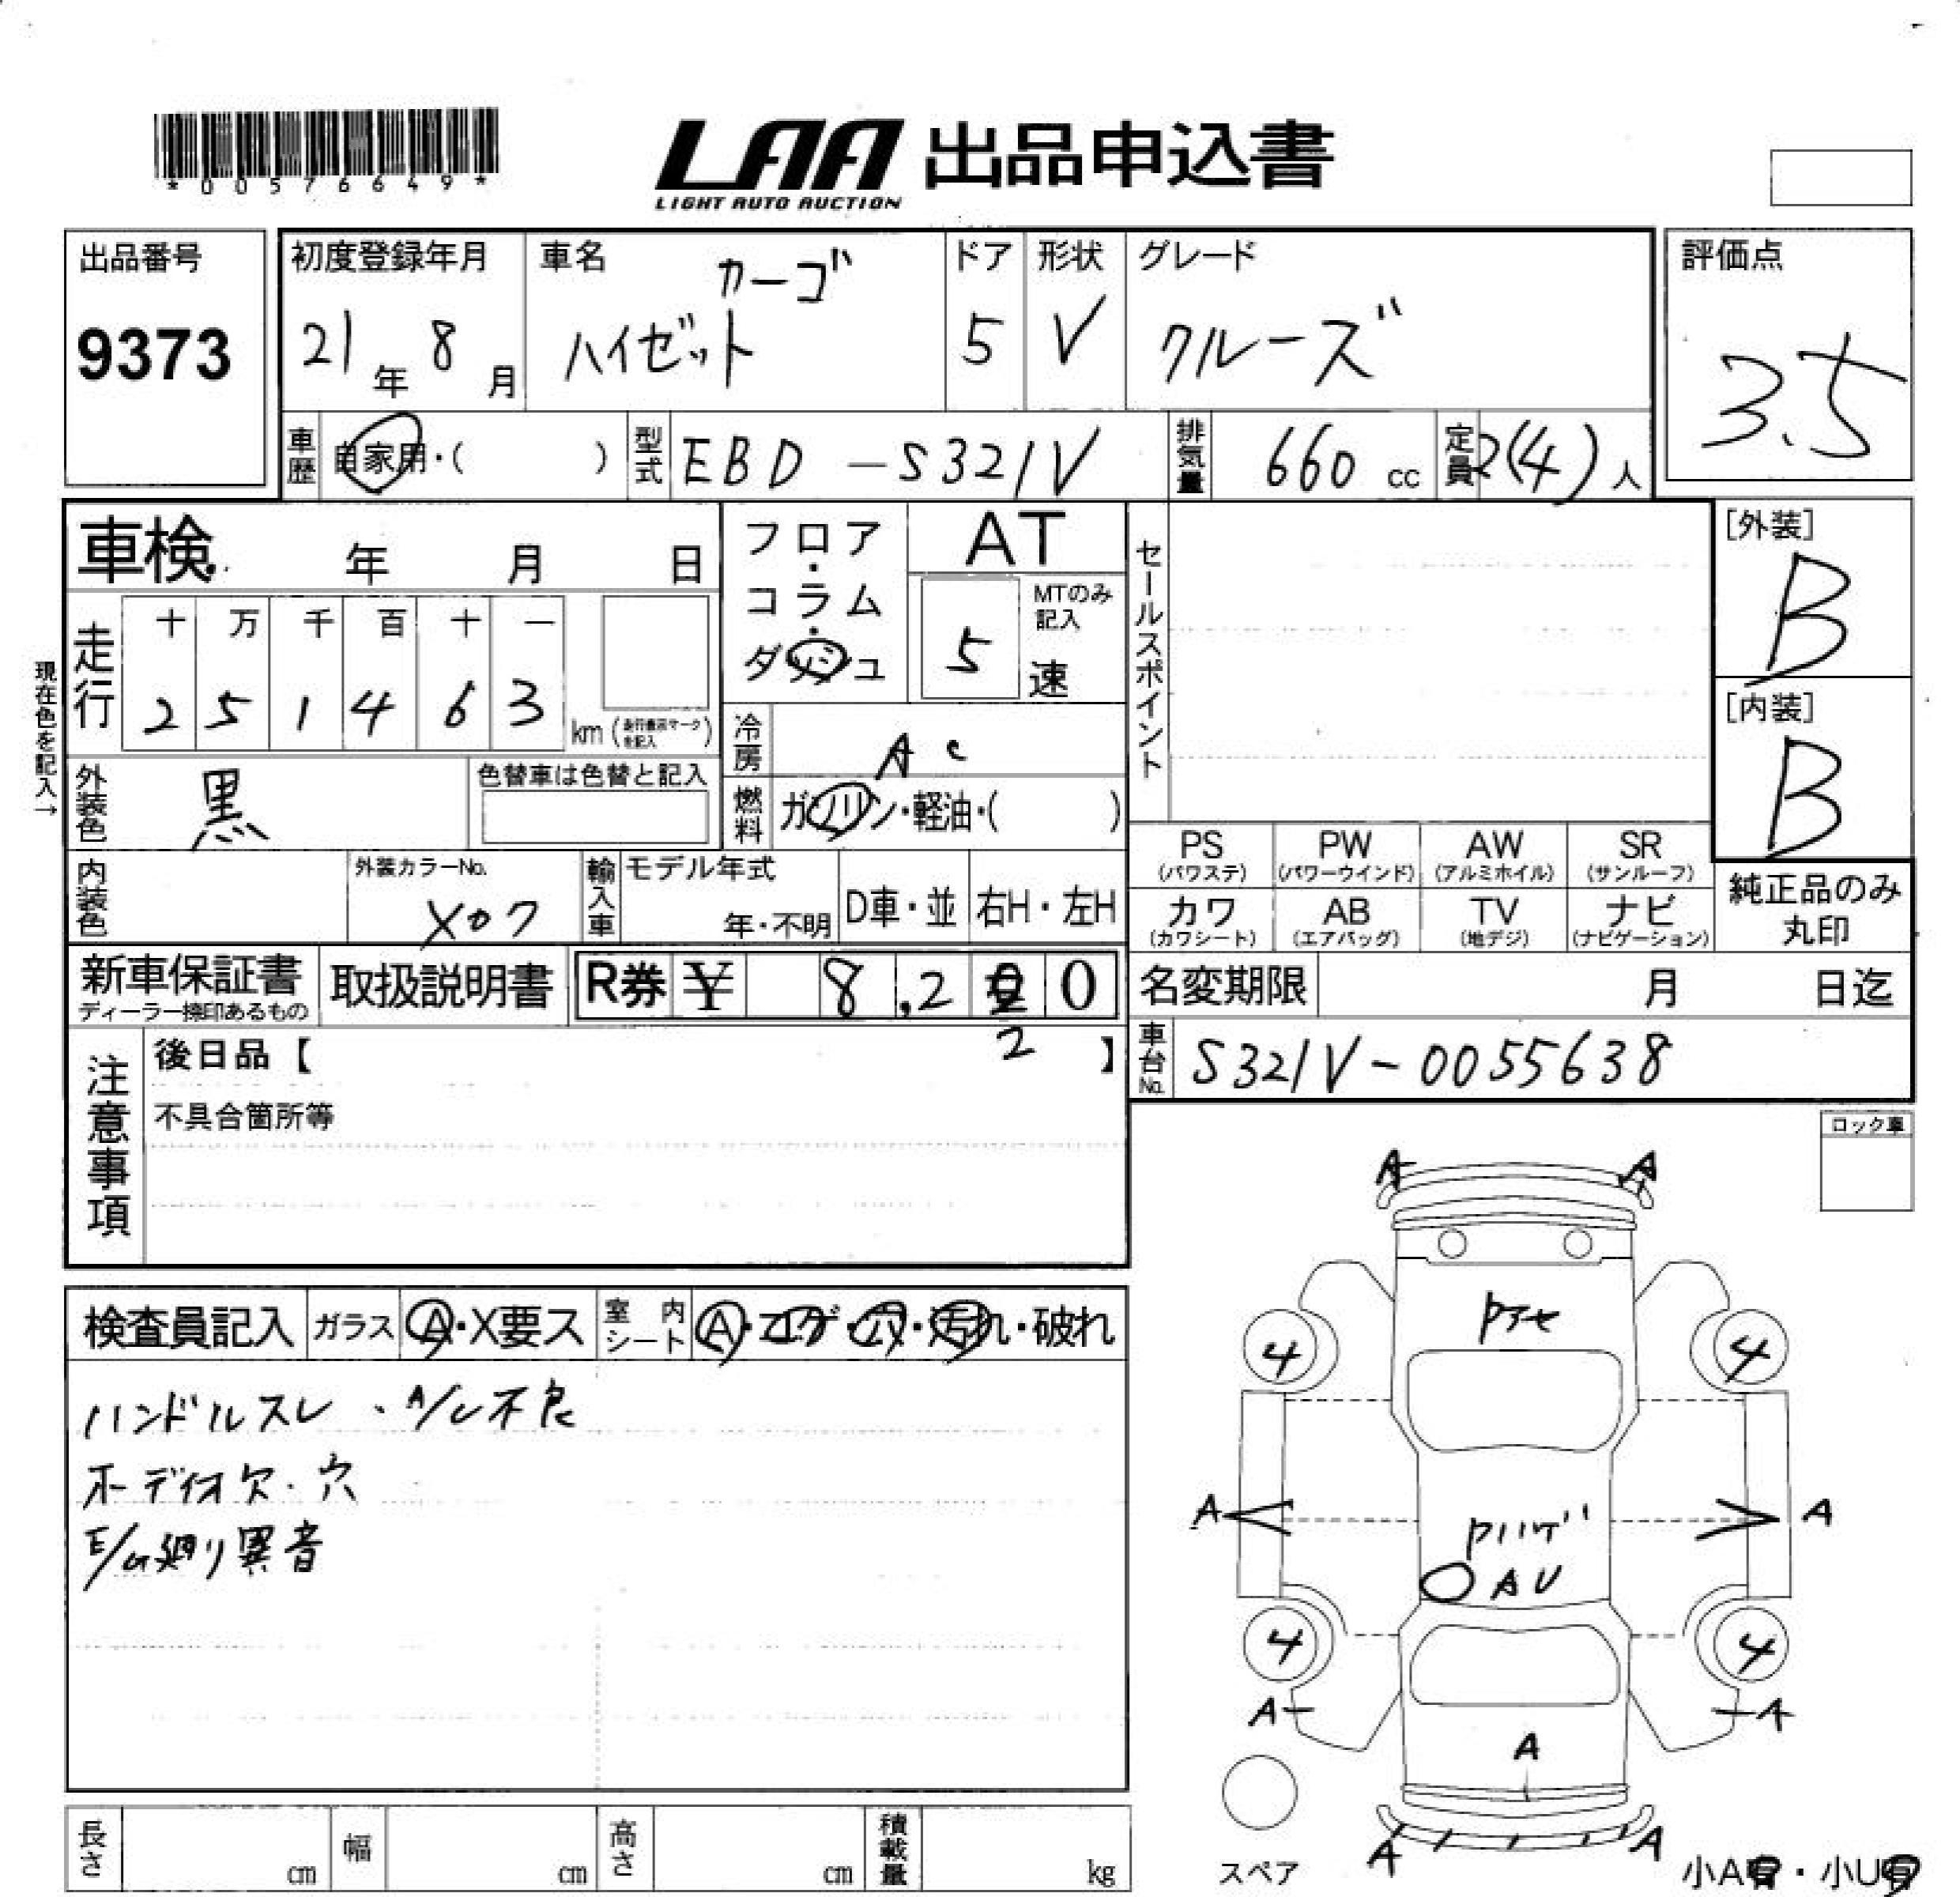 *00576649*
LAA 出品申込書
LIGHT AUTO AUCTION
出品番号
9373
初度登録年月
21年 8月
車名
カーゴ
ハイゼット
ドア
5
形状
V
グレード
クルーズ
評価点
3.5
車歴
自家用・( )
型式
EBD-S321V
排気量
660 cc
定員
2(4)人
車検 年 月 日
フロア・コラム・ダッシュ
AT
MTのみ記入
5 速
セールスポイント
[外装]
B
[内装]
B
現在色を記入→
走行
十 万 千 百 十 一
2 5 1 4 6 3
km (走行表示マークを記入)
冷房
AC
外装色
黒
色替車は色替と記入
燃料
ガソリン・軽油・( )
内装色
外装カラーNo.
X07
輸入車
モデル年式
年・不明
D車・並
右H・左H
PS (パワステ)
PW (パワーウインド)
AW (アルミホイル)
SR (サンルーフ)
カワ (カワシート)
AB (エアバッグ)
TV (地デジ)
ナビ (ナビゲーション)
純正品のみ
丸印
新車保証書
ディーラー捺印あるもの
取扱説明書
R券 ¥ 8,2 0
2
名変期限 月 日迄
車台No.
S321V-0055638
注意事項
後日品【 】
不具合箇所等
ロック車
検査員記入
ガラス
A・X要ス
室内シート
A・コゲ・穴・汚れ・破れ
ハンドルスレ・A/C不良
オーディオ欠・穴
E/G廻り異音
A A
Pアセ
4 4
A A
Pハゲ
AU
4 4
A A
A
A A
スペア
小A有・小U有
長さ cm
幅 cm
高さ cm
積載量 kg